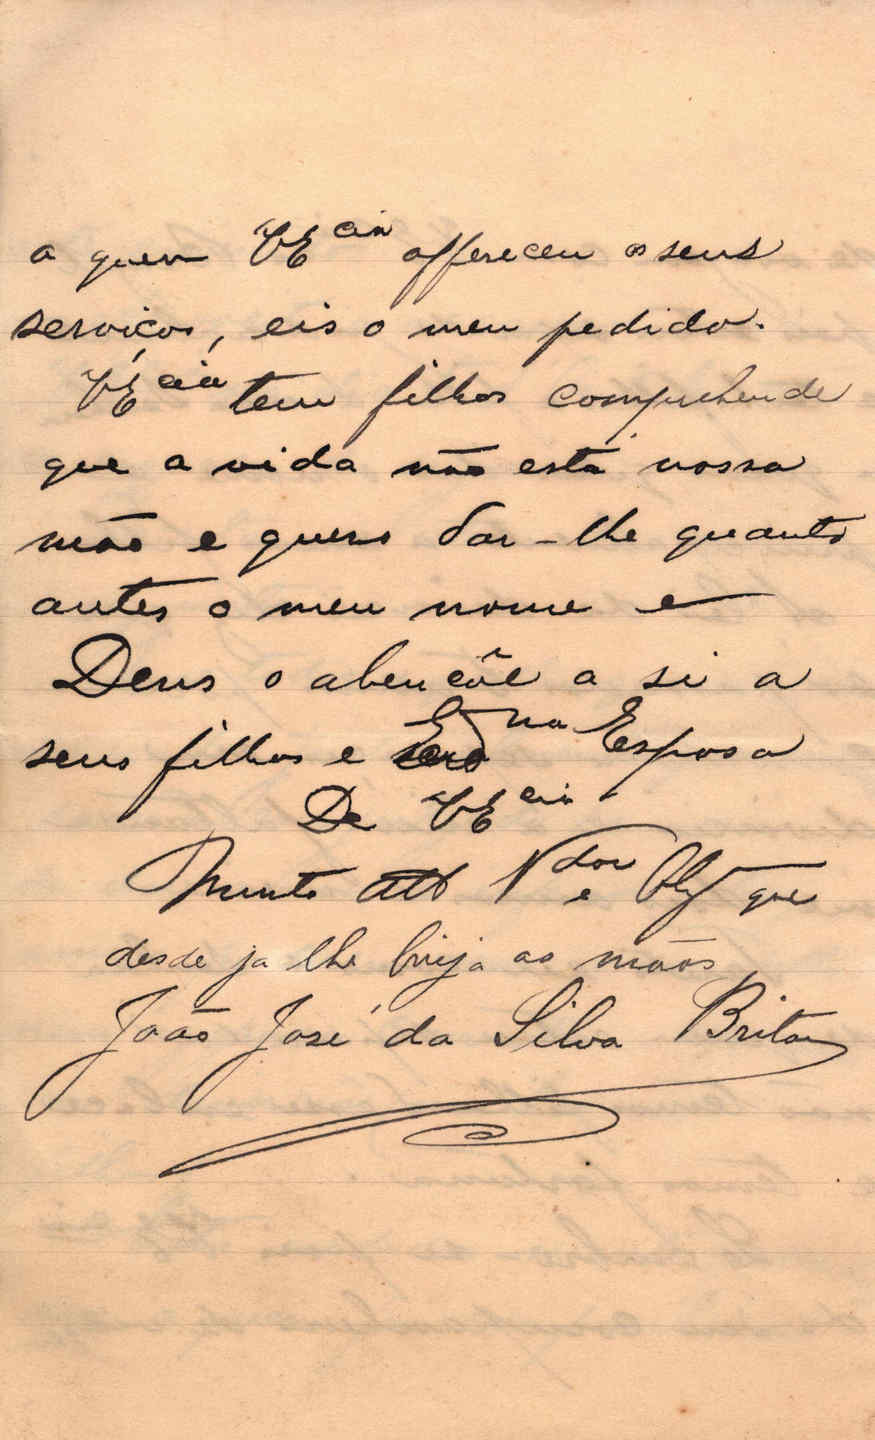 a quem VE^cia offereceu os seus
serviços, eis o meu pedido.
VE^cia tem filhos comprehende
que a vida não está nossa
mão e quero dar-lhe quanto
antes o meu nome e
Deus o abençõe a si a
seus filhos e E^ma Esposa
De VE^cia
Muito Att^o V^dor e Obg^o que
desde ja lhe beija as mãos
João José da Silva Brito